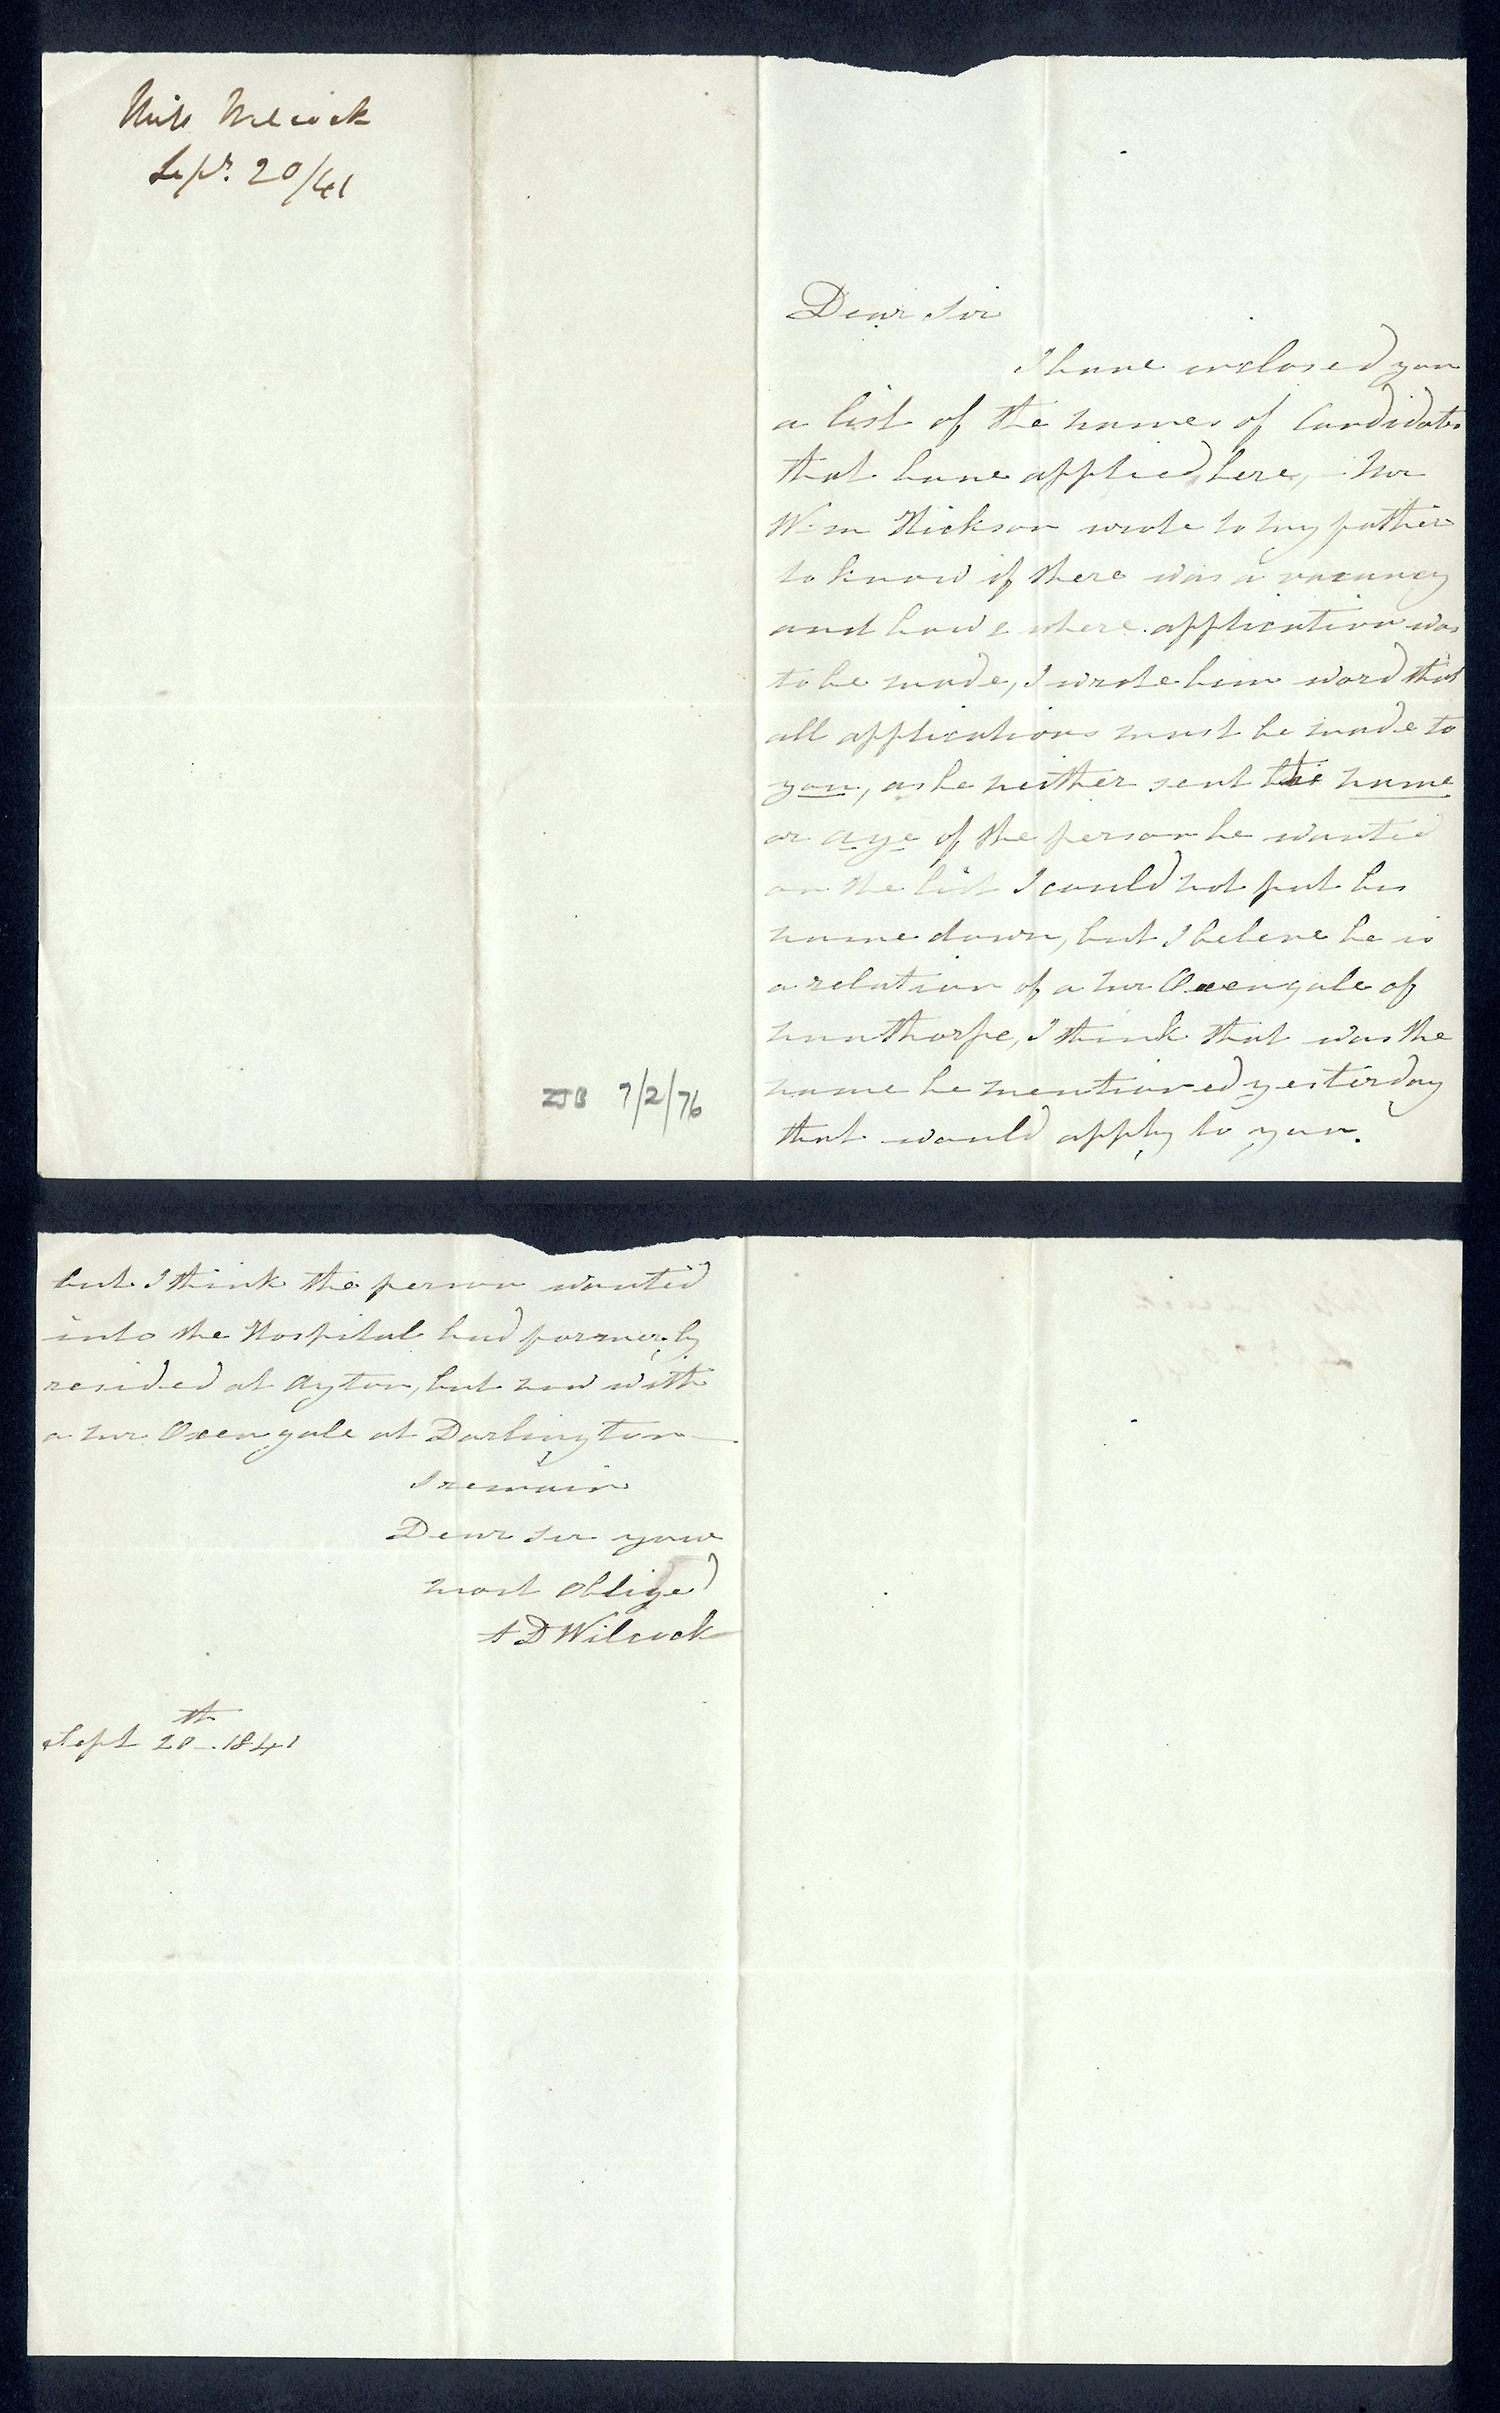 Miss Wilcock
Sepr. 20/41
Dear Sir
I have inclosed you
a list of the names of Candidates
that have applied here, - Mr
Wm Hickson wrote to my father
to know if there was a vacancy
and how & where application was
to be made, I wrote him word that
all applications must be made to
you, as he neither sent the name
or age of the person he wanted
on the list I could not put his
name down, but I beleve he is
a relation of a Mr Oxengale of
Nunthorpe, I think that was the
name he mentioned yesterday
that would apply to you.
ZJB 7/2/76
but I think the person wanted
into the Hospital had formerly
resided at Ayton, but now with
a Mr Oxengale at Darlington
I remain
Dear Sir your
most obliged
A D Wilcock
Sept 20th 1841